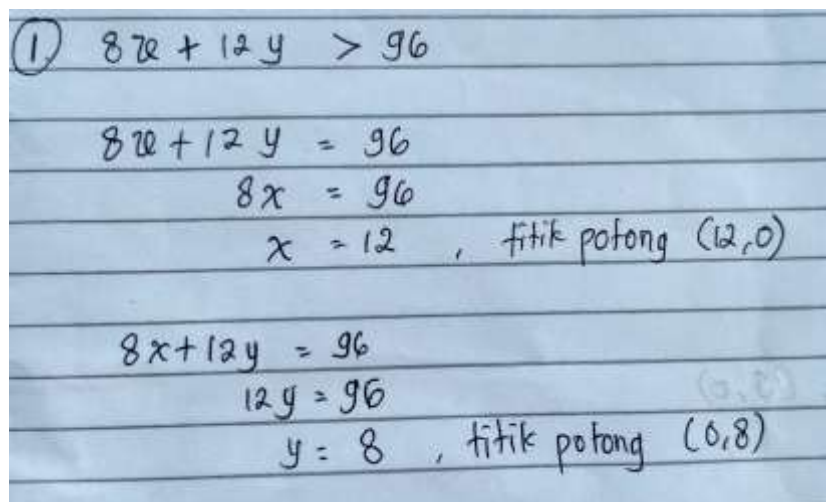 ① 8x + 12y > 96
8x + 12y = 96
8x = 96
x = 12 , titik potong (12,0)
8x + 12y = 96
12y = 96
y = 8 , titik potong (0,8)